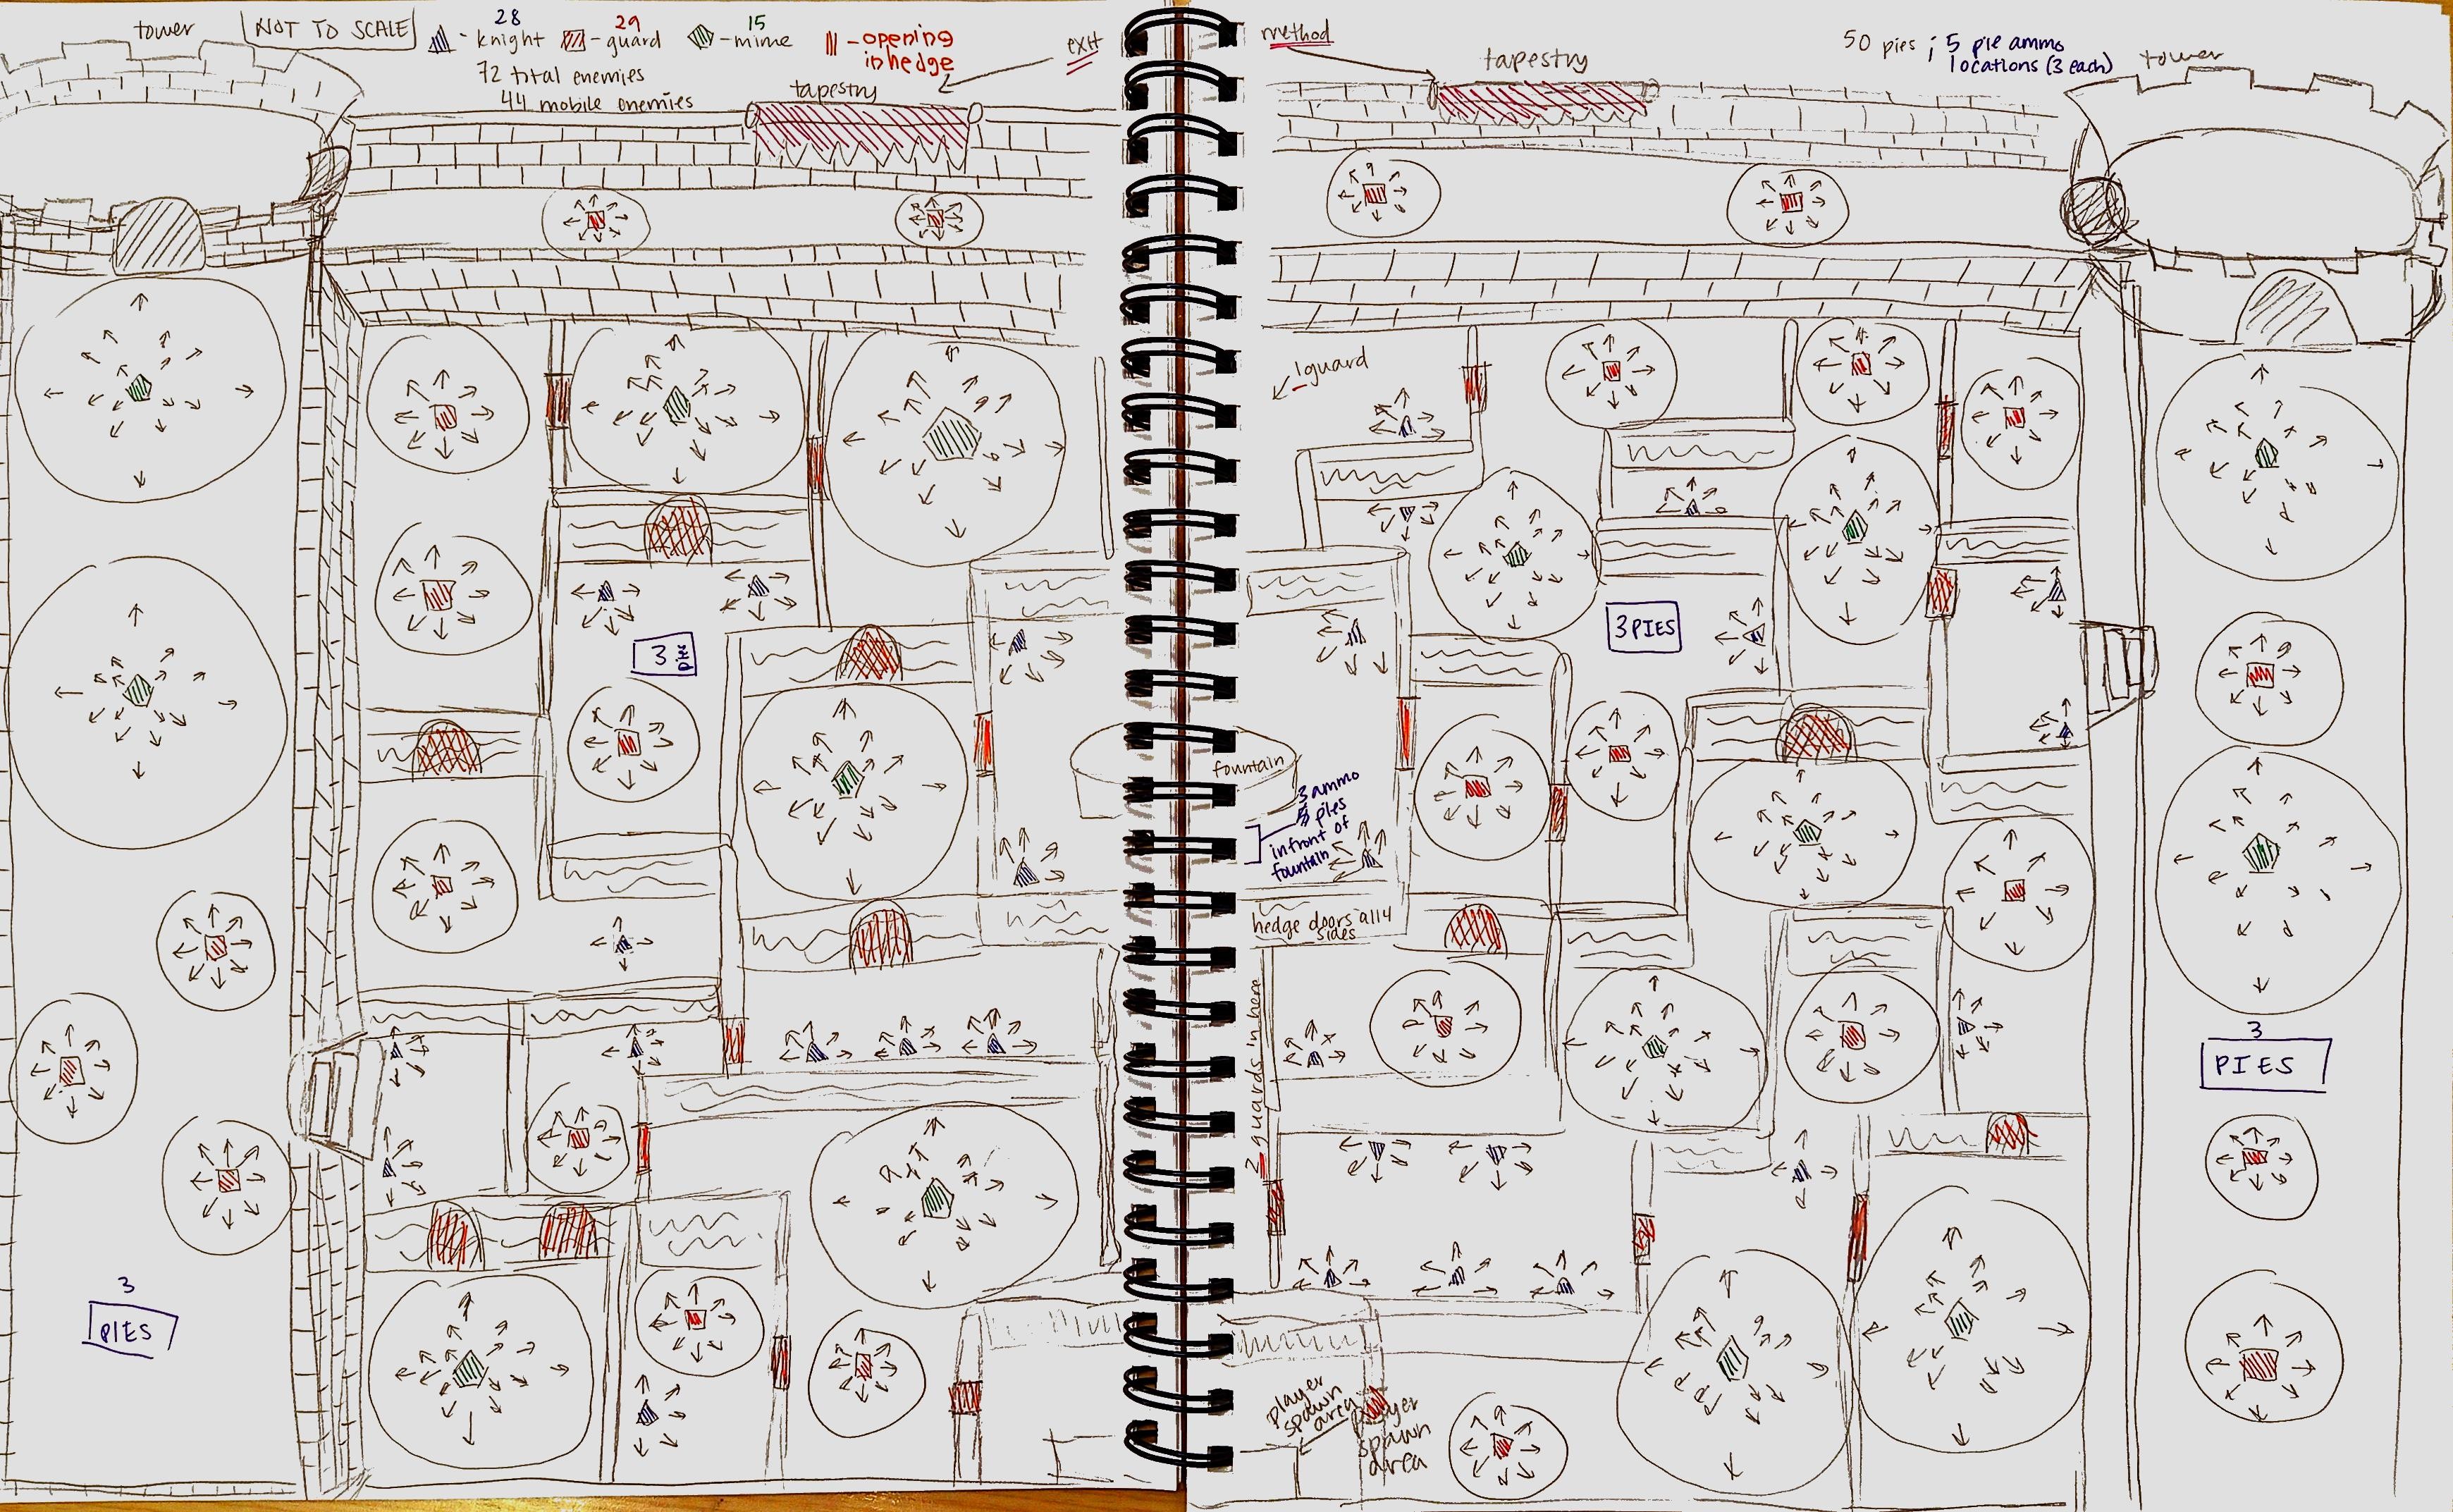 tower
NOT TO SCALE
28
- knight
29
- guard
15
- mime
- opening
in hedge
72 total enemies
44 mobile enemies
tapestry
exit
method
tapestry
50 pies ; 5 pie ammo
locations (3 each)
tower
1 guard
3 pies
3 PIES
fountain
3 ammo
piles
infront of
fountain
hedge doors all 4
sides
2 guards in here
3
PIES
3
PIES
player
spawn
area
player
spawn
area